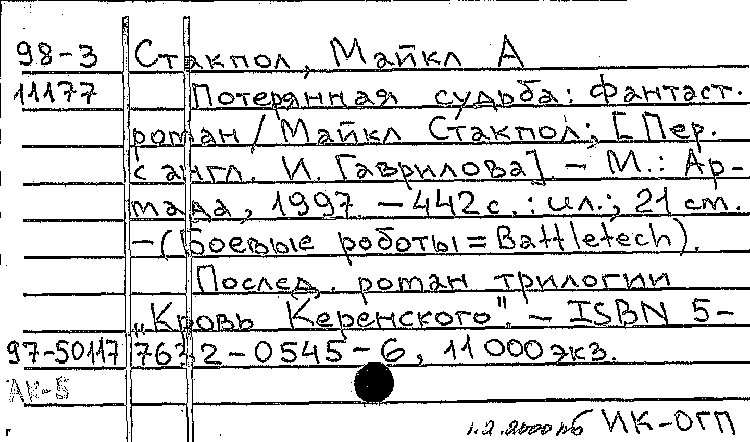 98-3 Стакпол, Майкл А
11177 Потерянная судьба: Фантаст.
роман / Майкл Стакпол; [Пер.
с англ. И. Гаврилова]. - М.: Ар-
мада, 1997 - 442 с.: ил.; 21 см.
- (Боевые роботы = Battletech).
Послед. роман трилогии
„Кровь Керенского". - ISBN 5-
97-50117 7632-0545-6, 11 000 экз.
АК-5
ИК-ОГП